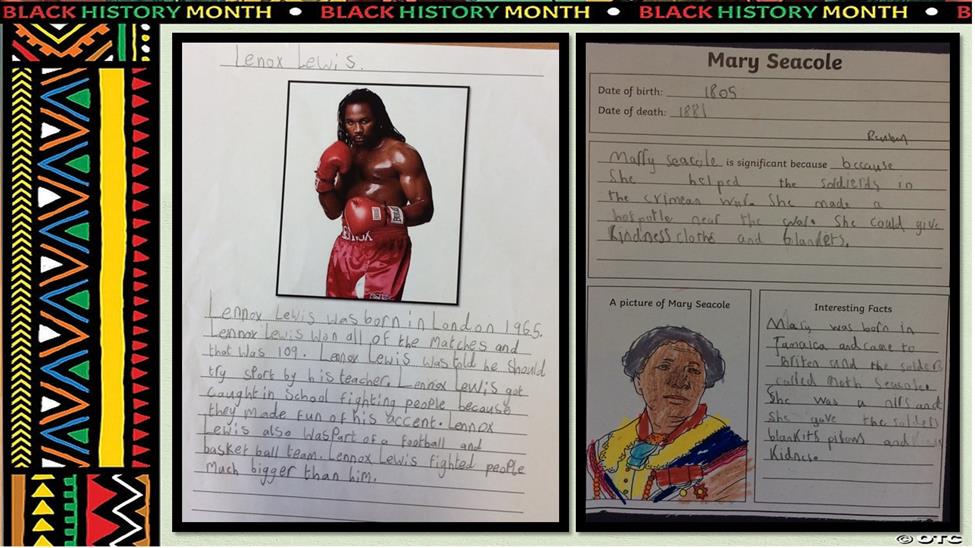 BLACK HISTORY MONTH • BLACK HISTORY MONTH • BLACK HISTORY MONTH • B
Lenox Lewis.
Lennox Lewis was born in London 1965.
Lennox Lewis won all of the matches and
that was 109. Lenox Lewis was told he should
try sport by his teacher. Lennox Lewis got
caught in School fighting people because
they made fun of his accent. Lennox
Lewis also was part of a football and
basket ball team. Lennox Lewis fighted people
much bigger than him.
Mary Seacole
Date of birth: 1805
Date of death: 1881
Marry seacole is significant because because
She helped the soldierds in
the crimean war. She made a
hospotle near the war. She could give
kindness cloths and blankets.
A picture of Mary Seacole
Interesting Facts
Mary was born in
Jamaica and came to
Briten and the solders
called Moth Seacole.
She was a nurs and
she gave the solders
blankits pilows and
Kidness.
© OTC